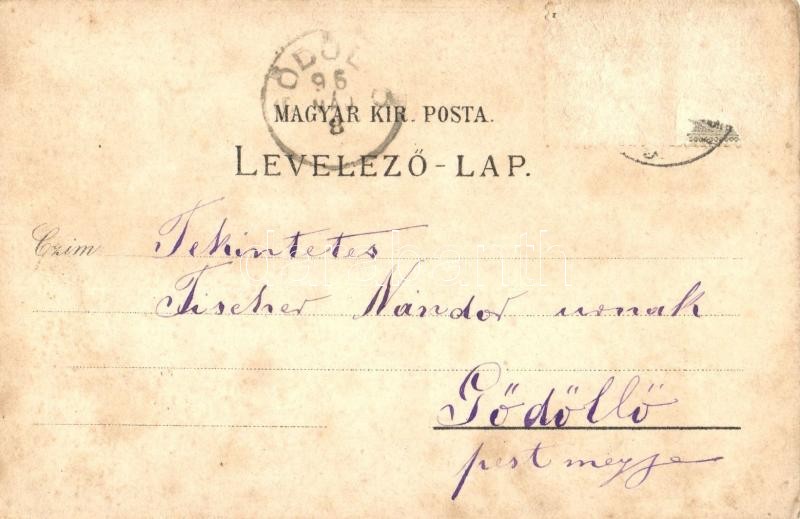 GÖDÖLLŐ
96
MÁJ
8
MAGYAR KIR. POSTA.
LEVELEZŐ-LAP.
Czím
Tekintetes
Fischer Nándor urnak
Gödöllő
pest megye